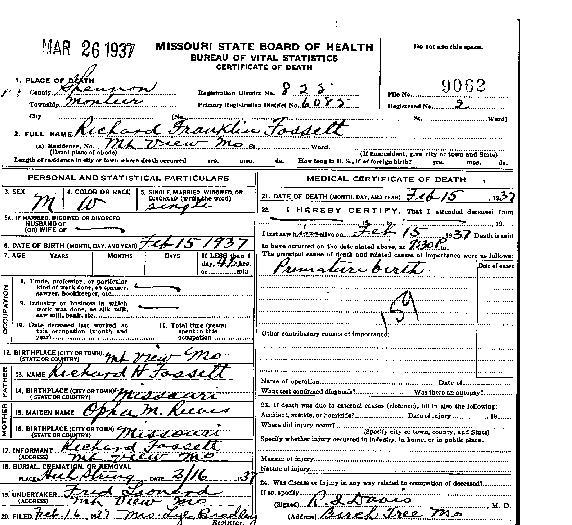 MAR 26 1937
MISSOURI STATE BOARD OF HEALTH
BUREAU OF VITAL STATISTICS
CERTIFICATE OF DEATH
Do not use this space.
1. PLACE OF DEATH
County Shannon
Registration District No. 822
File No. 9062
Township Montier
Primary Registration District No. 6082
Registered No. 2
City (No. Ward)
2. FULL NAME Richard Franklin Fossett
(a) Residence, No. Mt View Mo. Ward.
(Usual place of abode) (If nonresident, give city or town and State)
Length of residence in city or town where death occurred yrs. mos. ds. How long in U. S., if of foreign birth? yrs. mos. ds.
PERSONAL AND STATISTICAL PARTICULARS
3. SEX M
4. COLOR OR RACE W
5. SINGLE, MARRIED, WIDOWED, OR DIVORCED (write the word) single
5a. IF MARRIED, WIDOWED OR DIVORCED
HUSBAND OF
(OR) WIFE OF
6. DATE OF BIRTH (MONTH, DAY, AND YEAR) Feb 15 1937
7. AGE YEARS MONTHS DAYS If LESS than 1 day, hrs. or min.
OCCUPATION
8. Trade, profession, or particular kind of work done, as spinner, sawyer, bookkeeper, etc.
9. Industry or business in which work was done, as silk mill, saw mill, bank, etc.
10. Date deceased last worked at this occupation (month and year)
11. Total time (years) spent in this occupation
12. BIRTHPLACE (CITY OR TOWN) Mt View Mo
(STATE OR COUNTRY)
FATHER
13. NAME Richard H Fossett
14. BIRTHPLACE (CITY OR TOWN) Missouri
(STATE OR COUNTRY)
MOTHER
15. MAIDEN NAME Opha M.
16. BIRTHPLACE (CITY OR TOWN) Missouri
(STATE OR COUNTRY)
17. INFORMANT Richard Fossett
(ADDRESS) Mt View Mo
18. BURIAL, CREMATION, OR REMOVAL
PLACE DATE 2/16 37
19. UNDERTAKER
(ADDRESS) Mt View Mo
20. FILED Feb 16 Mrs. Bradley
Registrar
MEDICAL CERTIFICATE OF DEATH
21. DATE OF DEATH (MONTH, DAY, AND YEAR) Feb 15 1937
22. I HEREBY CERTIFY, That I attended deceased from
I last saw alive on Feb 15 1937 Death is said
to have occurred on the date stated above, at 7:30 P.
The principal cause of death and related causes of importance were as follows:
Date of onset
Premature birth
159
Other contributory causes of importance:
Name of operation Date of
What test confirmed diagnosis? Was there an autopsy?
23. If death was due to external causes (violence), fill in the following:
Accident, suicide, or homicide? Date of injury 19
Where did injury occur?
(Specify city or town, county, and State)
Specify whether injury occurred in industry, in home, or in public place.
Manner of injury
Nature of injury
24. Was disease or injury in any way related to occupation of deceased?
If so, specify
(Signed) R S Davis M. D.
(Address) Birch Tree Mo